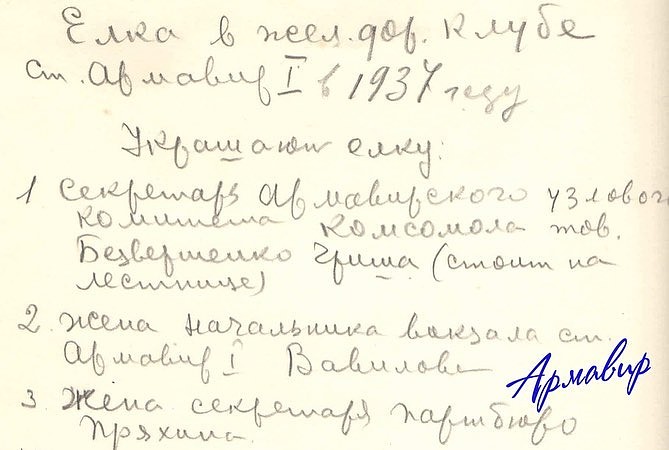 Елка в жел. дор. клубе
ст. Армавир I в 1937 году
Украшают елку:
1 Секретарь Армавирского узлового
комитета комсомола тов.
Безвершенко Гриша (стоит на
лестнице)
2. Жена начальника вокзала ст.
Армавир I Вавилова
Армавир
3 Жена секретаря партбюро
Пряхина